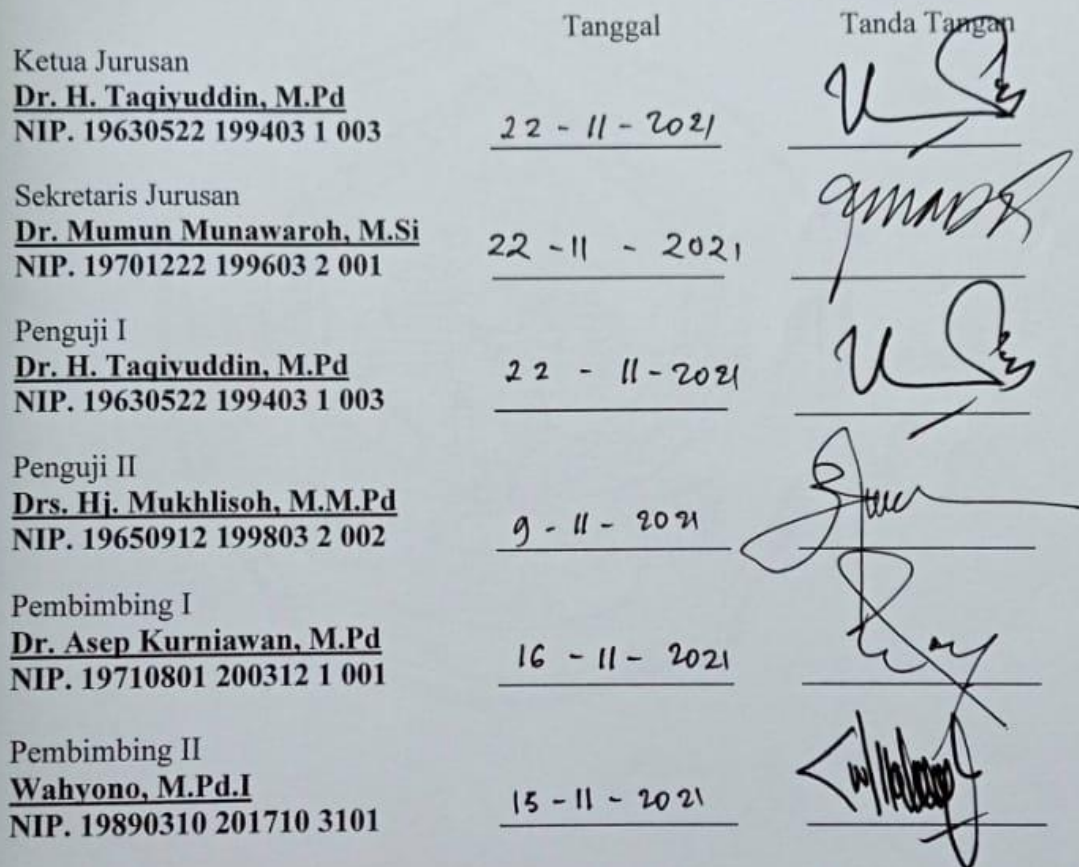 Tanggal Tanda Tangan
Ketua Jurusan
Dr. H. Taqiyuddin, M.Pd
NIP. 19630522 199403 1 003 22 - 11 - 2021
Sekretaris Jurusan
Dr. Mumun Munawaroh, M.Si
NIP. 19701222 199603 2 001 22 - 11 - 2021
Penguji I
Dr. H. Taqiyuddin, M.Pd
NIP. 19630522 199403 1 003 22 - 11 - 2021
Penguji II
Drs. Hj. Mukhlisoh, M.M.Pd
NIP. 19650912 199803 2 002 9 - 11 - 2021
Pembimbing I
Dr. Asep Kurniawan, M.Pd
NIP. 19710801 200312 1 001 16 - 11 - 2021
Pembimbing II
Wahyono, M.Pd.I
NIP. 19890310 201710 3101 15 - 11 - 2021